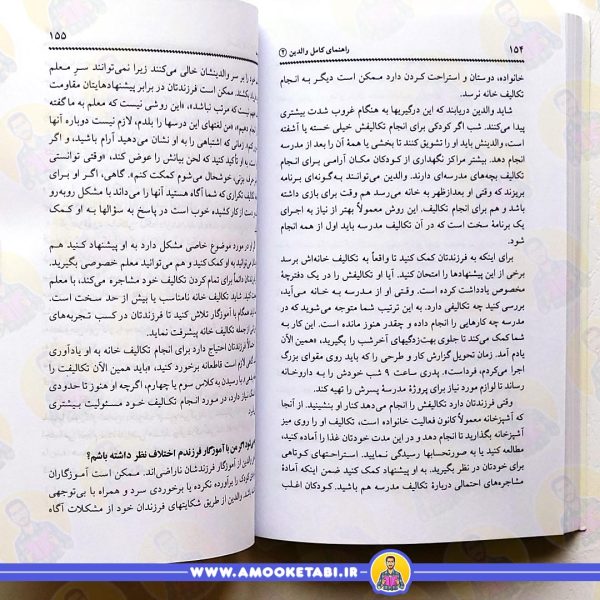 ۱۵۴
راهنمای کامل والدین ۲
خانواده، دوستان و استراحت کردن دارد ممکن است دیگر به انجام
تکالیف خانه نرسد.
شاید والدین دریابند که این درگیریها به هنگام غروب شدت بیشتری
پیدا می‌کنند. شب اگر کودکی برای انجام تکالیفش خیلی خسته یا آشفته
است، والدینش باید او را تشویق کنند تا بخشی یا همهٔ آن را بعد از مدرسه
انجام دهد. بیشتر مراکز نگهداری از کودکان مکان آرامی برای انجام
تکالیف بچه‌های مدرسه‌ای دارند. والدین می‌توانند به‌گونه‌ای برنامه
بریزند که وقتی او بعدازظهر به خانه می‌رسد هم وقت برای بازی داشته
باشد و هم برای انجام تکالیف. این روش معمولاً بهتر از نیاز به اجرای
یک برنامهٔ سخت است که در آن تکالیف مدرسه باید اول از همه انجام
شود.
برای اینکه به فرزندتان کمک کنید تا واقعاً به تکالیف خانه‌اش برسد
برخی از این پیشنهادها را امتحان کنید. آیا او تکالیفش را در یک دفترچهٔ
مخصوص یادداشت کرده است. وقتی او از مدرسه به خانه می‌آید،
بررسی کنید چه تکالیفی دارد. به این ترتیب شما متوجه می‌شوید که در
مدرسه چه کارهایی را انجام داده و چقدر هنوز مانده است. این کار به
شما کمک می‌کند تا جلوی بهت‌زدگیهای آخر شب را بگیرید، «همین الآن
یادم آمد. زمان تحویل گزارش کار و طرحی را که باید روی مقوای بزرگ
اجرا می‌کردم، فرداست». پدری ساعت ۹ شب خودش را به داروخانه
رساند تا لوازم مورد نیاز برای پروژهٔ مدرسهٔ پسرش را تهیه کند.
وقتی فرزندتان دارد تکالیفش را انجام می‌دهد کنار او بنشینید. از آنجا
که آشپزخانه معمولاً کانون فعالیت خانواده است، تکالیف او را روی میز
آشپزخانه بگذارید تا انجام دهد و در این مدت خودتان غذا را آماده کنید،
مطالعه کنید یا به صورتحسابها رسیدگی نمایید. استراحتهای کوتاهی
برای خودتان در نظر بگیرید. به او پیشنهاد کمک کنید ضمن اینکه آمادهٔ
مشاجره‌های احتمالی دربارهٔ تکالیف مدرسه هم باشید. کودکان اغلب
۱۵۵
را بر سر والدینشان خالی می‌کنند زیرا نمی‌توانند سرِ معلم
بکشند. ممکن است فرزندتان در برابر پیشنهادهایتان مقاومت
که مرتب نباشد»، «این روشی نیست که معلم به ما گفته
«من لغتهای این درسها را بلدم، لازم نیست دوباره آنها
زمانی که اشتباهی را به او نشان می‌دهید آرام باشید، و اگر
به او تأکید کنید که لحن بیانش را عوض کند، «وقتی توانستی
بزنی، خوشحال می‌شوم کمکت کنم». گاهی، اگر او برای
تکالیف تکراری که شما آگاه هستید آنها را می‌داند با مشکل روبه‌رو
از کار کشیده خوب است در پاسخ به سؤالها به او کمک
در مورد موضوع خاصی مشکل دارد به او پیشنهاد کنید هم
به او کمک کنید و هم می‌توانید معلم خصوصی بگیرید.
دائماً برای تمام کردن تکالیف خود مشاجره می‌کند، با معلم
کنید. شاید تکالیف خانه نامناسب یا بیش از حد سخت است.
هنگام با آموزگار تلاش کنید تا فرزندتان در کسب تجربه‌های
از جمله تکالیف خانه پیشرفت نماید.
فرزندتان احتیاج دارد برای انجام تکالیف خانه به او یادآوری
لازم است قاطعانه برخورد کنید، «باید همین الآن تکالیفت را
با رسیدن به کلاس سوم یا چهارم، اگرچه او هنوز تا حدودی
نیاز دارد، در مورد انجام تکالیف خود مسئولیت بیشتری
اگر من با آموزگار فرزندم اختلاف نظر داشته باشم؟
والدین از آموزگار فرزندشان ناراضی‌اند. ممکن است آموزگاران
کودک را برآورده نکرده یا برخوردی سرد و همراه با بی‌توجهی
باشد. والدین از طریق شکایتهای فرزندان خود از مشکلات آگاه
WWW.AMOOKETABI.IR